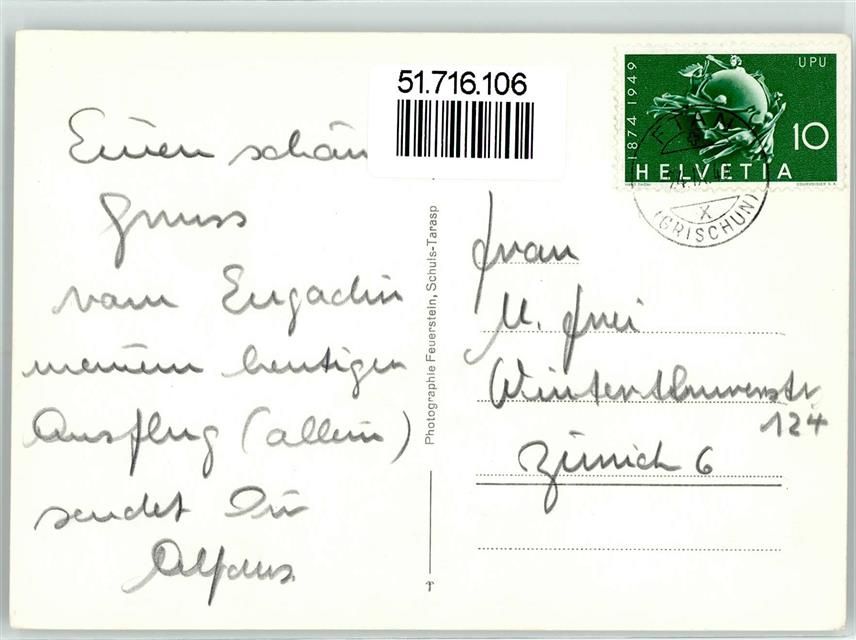 51.716.106
Einen schön
Gruss
vom Engadin
meinem heutigen
Ausflug (allein)
sendet Dir
Alfons.
Photographie Feuerstein, Schuls-Tarasp
1874 1949
UPU
10
HELVETIA
COURVOISIER S.A.
X
(GRISCHUN)
Frau
M. Frei
Winterthurerstr
124
Zürich 6